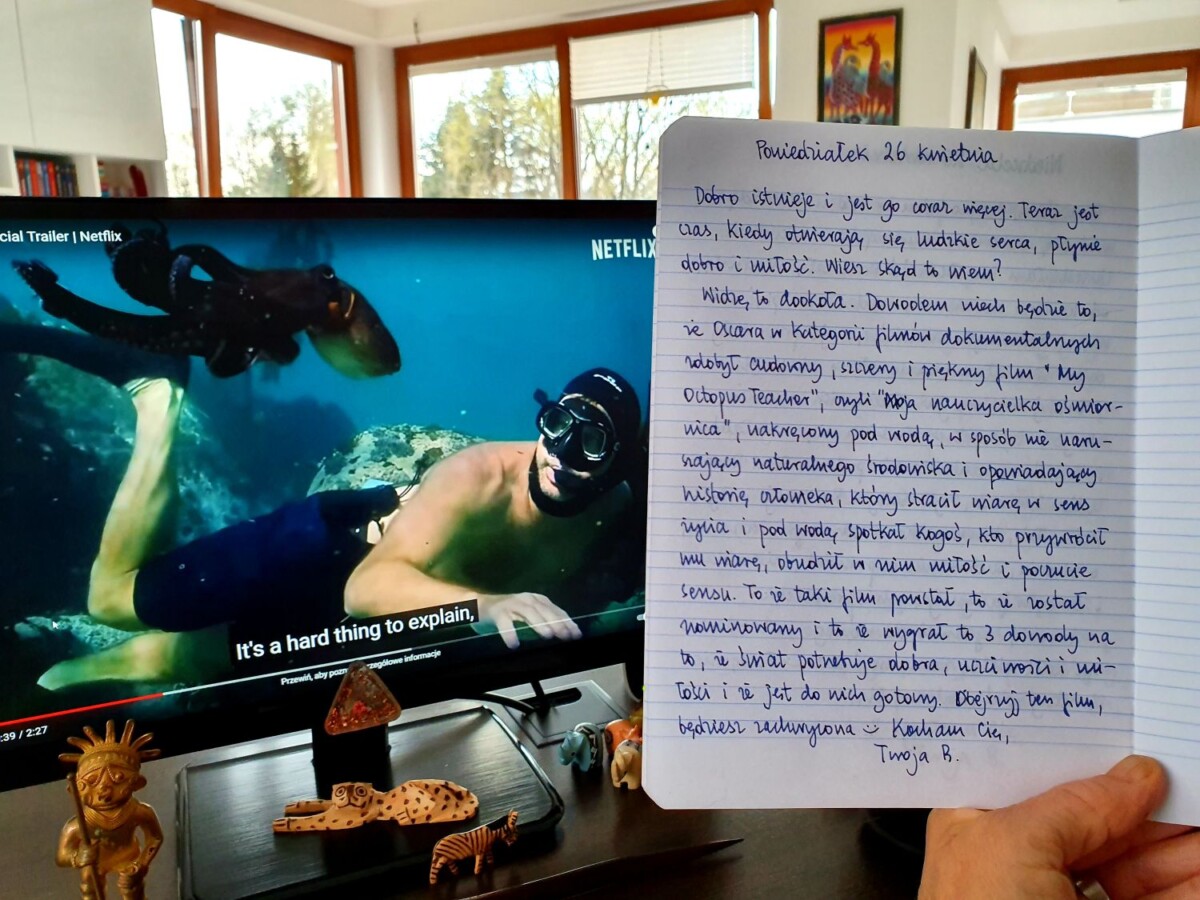 cial Trailer | Netflix
NETFLIX
It's a hard thing to explain,
Przewiń, aby pozn szczegółowe informacje
:39 / 2:27
Poniedziałek 26 kwietnia
Dobro istnieje i jest go coraz więcej. Teraz jest
czas, kiedy otwierają się ludzkie serca, płynie
dobro i miłość. Wiesz skąd to wiem?
Widzę to dookoła. Dowodem niech będzie to,
że Oscara w kategorii filmów dokumentalnych
zdobył cudowny, szczery i piękny film "My
Octopus Teacher", czyli "Moja nauczycielka ośmior-
nica", nakręcony pod wodą, w sposób nie naru-
szający naturalnego środowiska i opowiadający
historię człowieka, który stracił wiarę w sens
życia i pod wodą spotkał kogoś, kto przywrócił
mu wiarę, obudził w nim miłość i poczucie
sensu. To że taki film powstał, to że został
nominowany i to że wygrał to 3 dowody na
to, że świat potrzebuje dobra, uczciwości i mi-
łości i że jest do nich gotowy. Obejrzyj ten film,
będziesz zachwycona :) Kocham Cię,
Twoja B.